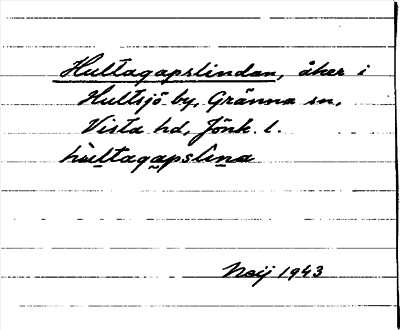 Hultagapslindan, åker i
Hultsjö by, Gränna sn,
Vista hd, Jönk. l.
hultagapslina
1943